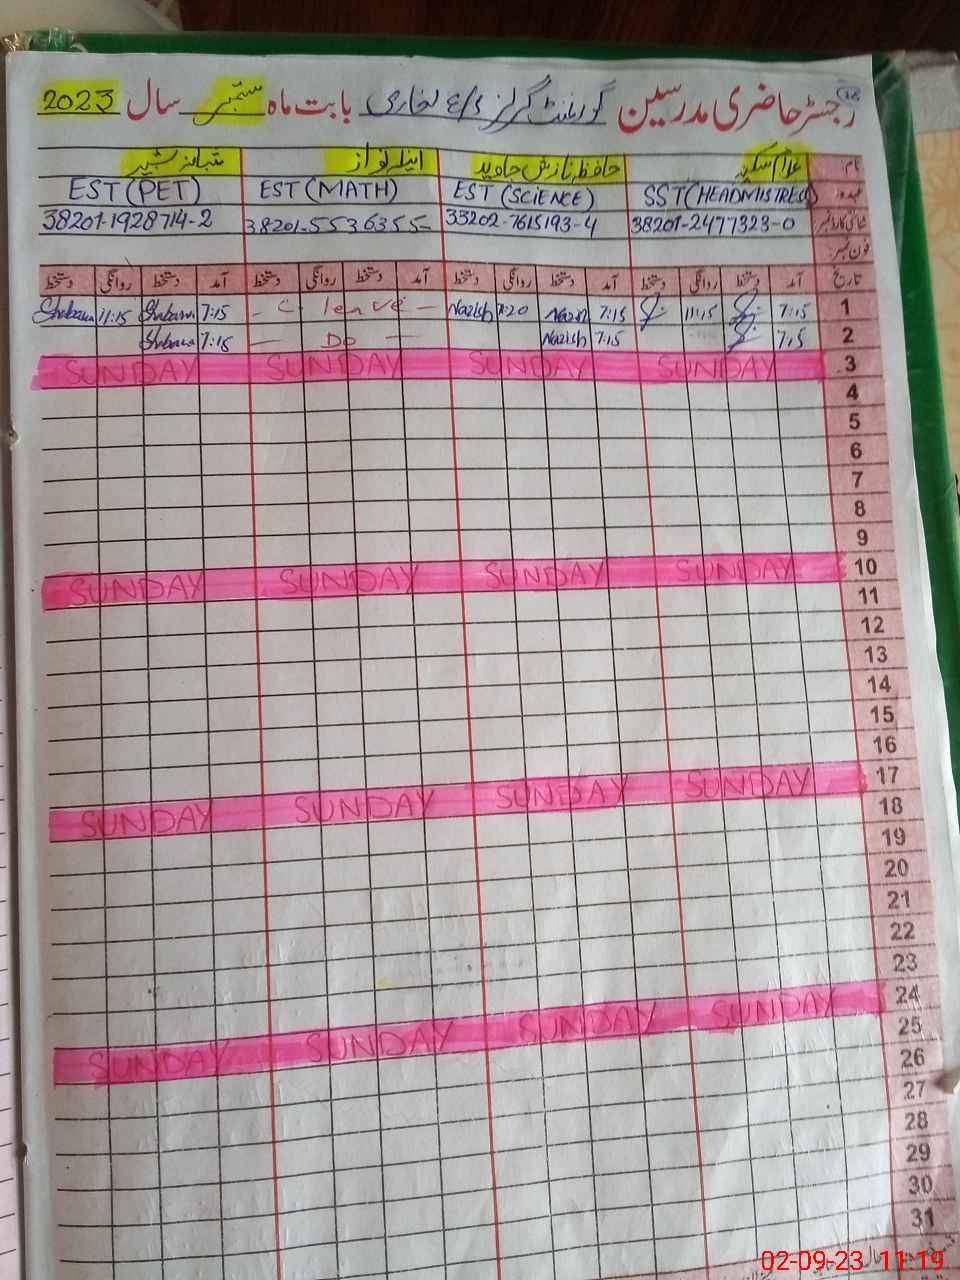 رجسٹر حاضری مدرسین گورنمنٹ گرلز ای/ایس بخاری بابت ماہ ستمبر سال 2023
نام غلام سکینہ حافظہ نازش جاوید اینلہ نواز شبانہ شبیر
عہدہ: SST (HEADMISTRESS) EST (SCIENCE) EST (MATH) EST (PET)
شناختی کارڈ نمبر 38201-2477323-0 33202-7615193-4 38201-5536355- 38201-1928714-2
فون نمبر:
تاریخ آمد دستخط روانگی دستخط آمد دستخط روانگی دستخط آمد دستخط روانگی دستخط آمد دستخط روانگی دستخط
1 7:15 11:15 7:15 Nazish 7:20 Nazish - C- leave - 7:15 Shabana 11:15 Shabana
2 7:15 7:15 Nazish — Do — 7:15 Shabana
3 SUNDAY SUNDAY SUNDAY SUNDAY
4
5
6
7
8
9
10 SUNDAY SUNDAY SUNDAY SUNDAY
11
12
13
14
15
16
17 SUNDAY SUNDAY SUNDAY SUNDAY
18
19
20
21
22
23
24 SUNDAY SUNDAY SUNDAY SUNDAY
25
26
27
28
29
30
31
02-09-23 11:19